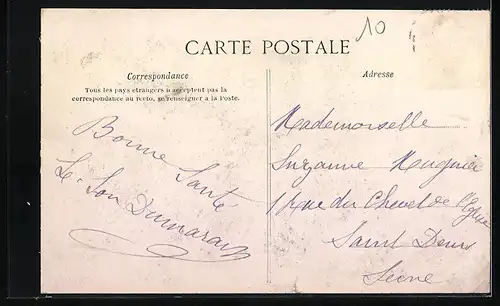 10
CARTE POSTALE
Correspondance
Tous les pays étrangers n'acceptent pas la
correspondance au recto, se renseigner à la Poste.
Bonne Santé
Adresse
Mademoiselle
Suzanne
1 Rue du Chevet de l'Eglise
Saint Denis
Seine